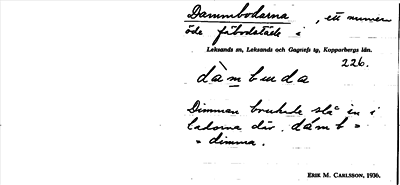 Dammbodarna, ett numera
öde fäbodställe i
Leksands sn, Leksands och Gagnefs tg, Kopparbergs län.
226.
dàmbuda
Dimman brukade slå in i
ladorna där. dámb =
= dimma.
ERIK M. CARLSSON, 1936.